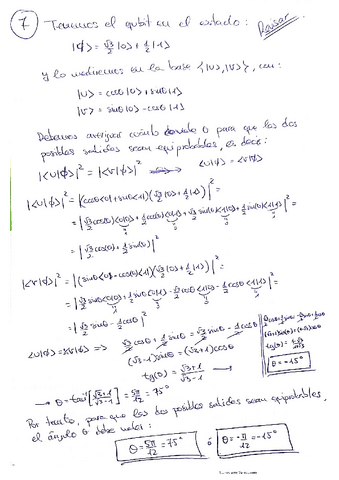 7 Tenemos el qubit en el estado: Revisar
|ϕ> = √3/2 |0> + 1/2 |1>
y lo medimos en la base {|u>, |v>}, con:
|u> = cosθ |0> + sinθ |1>
|v> = sinθ |0> - cosθ |1>
Debemos averiguar cuánto vale θ para que las dos
posibles salidas sean equiprobables, es decir:
|<u|ϕ>|² = |<v|ϕ>|² ⟹ <u|ϕ> = <v|ϕ>
|<u|ϕ>|² = |(cosθ<0| + sinθ<1|)(√3/2 |0> + 1/2 |1>)|² =
= |√3/2 cosθ<0|0> + 1/2 cosθ<0|1> + √3/2 sinθ<1|0> + 1/2 sinθ<1|1>|² =
= |√3/2 cosθ + 1/2 sinθ|²
|<v|ϕ>|² = |(sinθ<0| - cosθ<1|)(√3/2 |0> + 1/2 |1>)|² =
= |√3/2 sinθ<0|0> + 1/2 sinθ<0|1> - √3/2 cosθ<1|0> - 1/2 cosθ<1|1>|² =
= |√3/2 sinθ - 1/2 cosθ|²
<u|ϕ> = <v|ϕ> ⟹ √3/2 cosθ + 1/2 sinθ = √3/2 sinθ - 1/2 cosθ
(√3-1) sinθ = (√3+1) cosθ
tg(θ) = √3+1/√3-1
θ = -15°
→ θ = tan⁻¹[√3+1/√3-1] = 5π/12 = 75°
Por tanto, para que las dos posibles salidas sean equiprobables,
el ángulo θ debe valer:
θ = 5π/12 = 75° ó θ = -π/12 = -15°